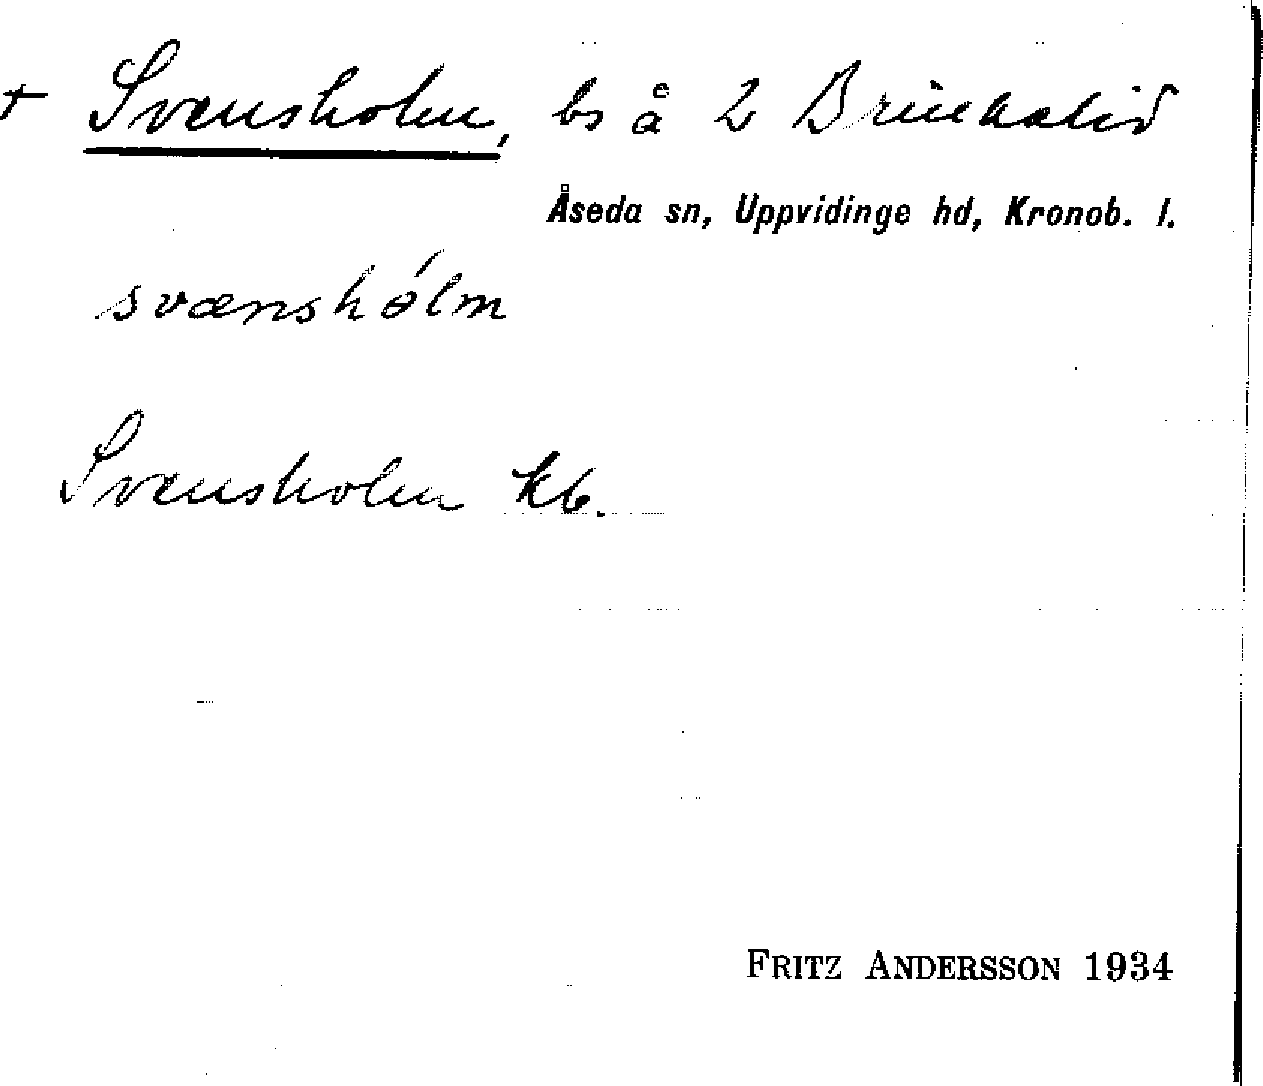 + Svensholm, bs å 2 Brinkalid
Åseda sn, Uppvidinge hd, Kronob. l.
svænshólm
Svensholm kb.
FRITZ ANDERSSON 1934